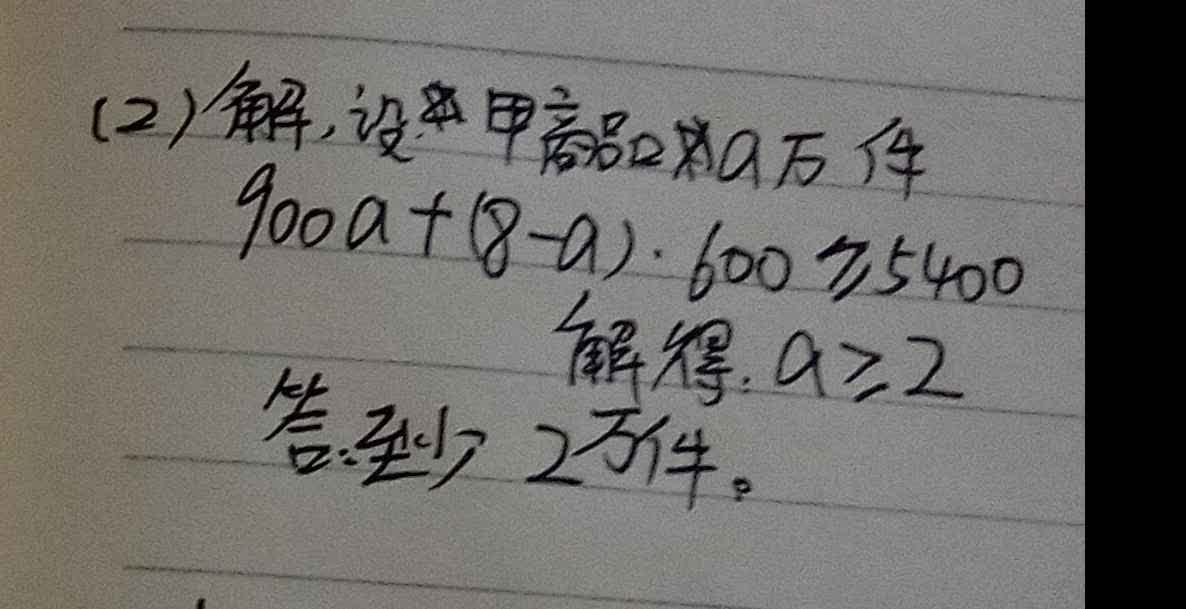 (2)解,设甲商品为a万件
900a+(8-a)·600≥5400
解得:a≥2
答:至少2万件。